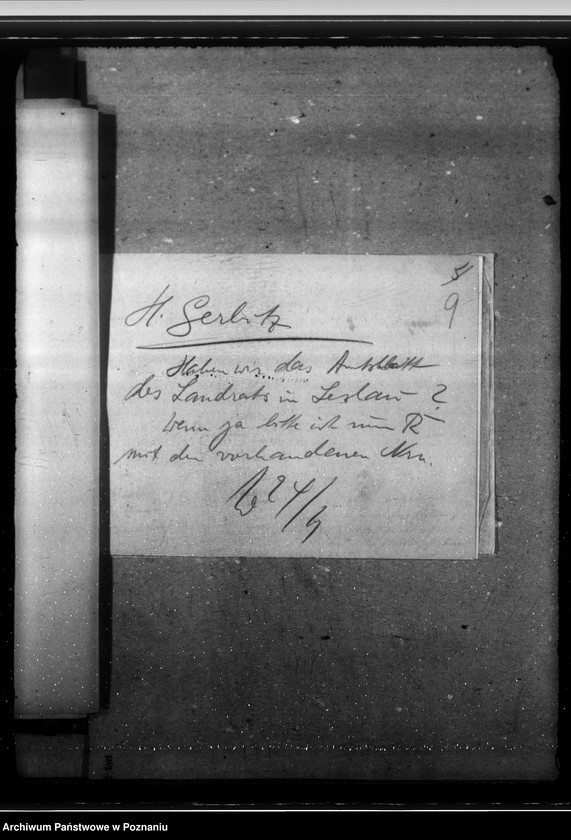 9
H. Gerlitz
Haben wir das Amtsblatt
des Landrats in Leslau ?
Wenn ja bitte ich um R
mit den vorhandenen Nrn.
24/9
Archiwum Państwowe w Poznaniu